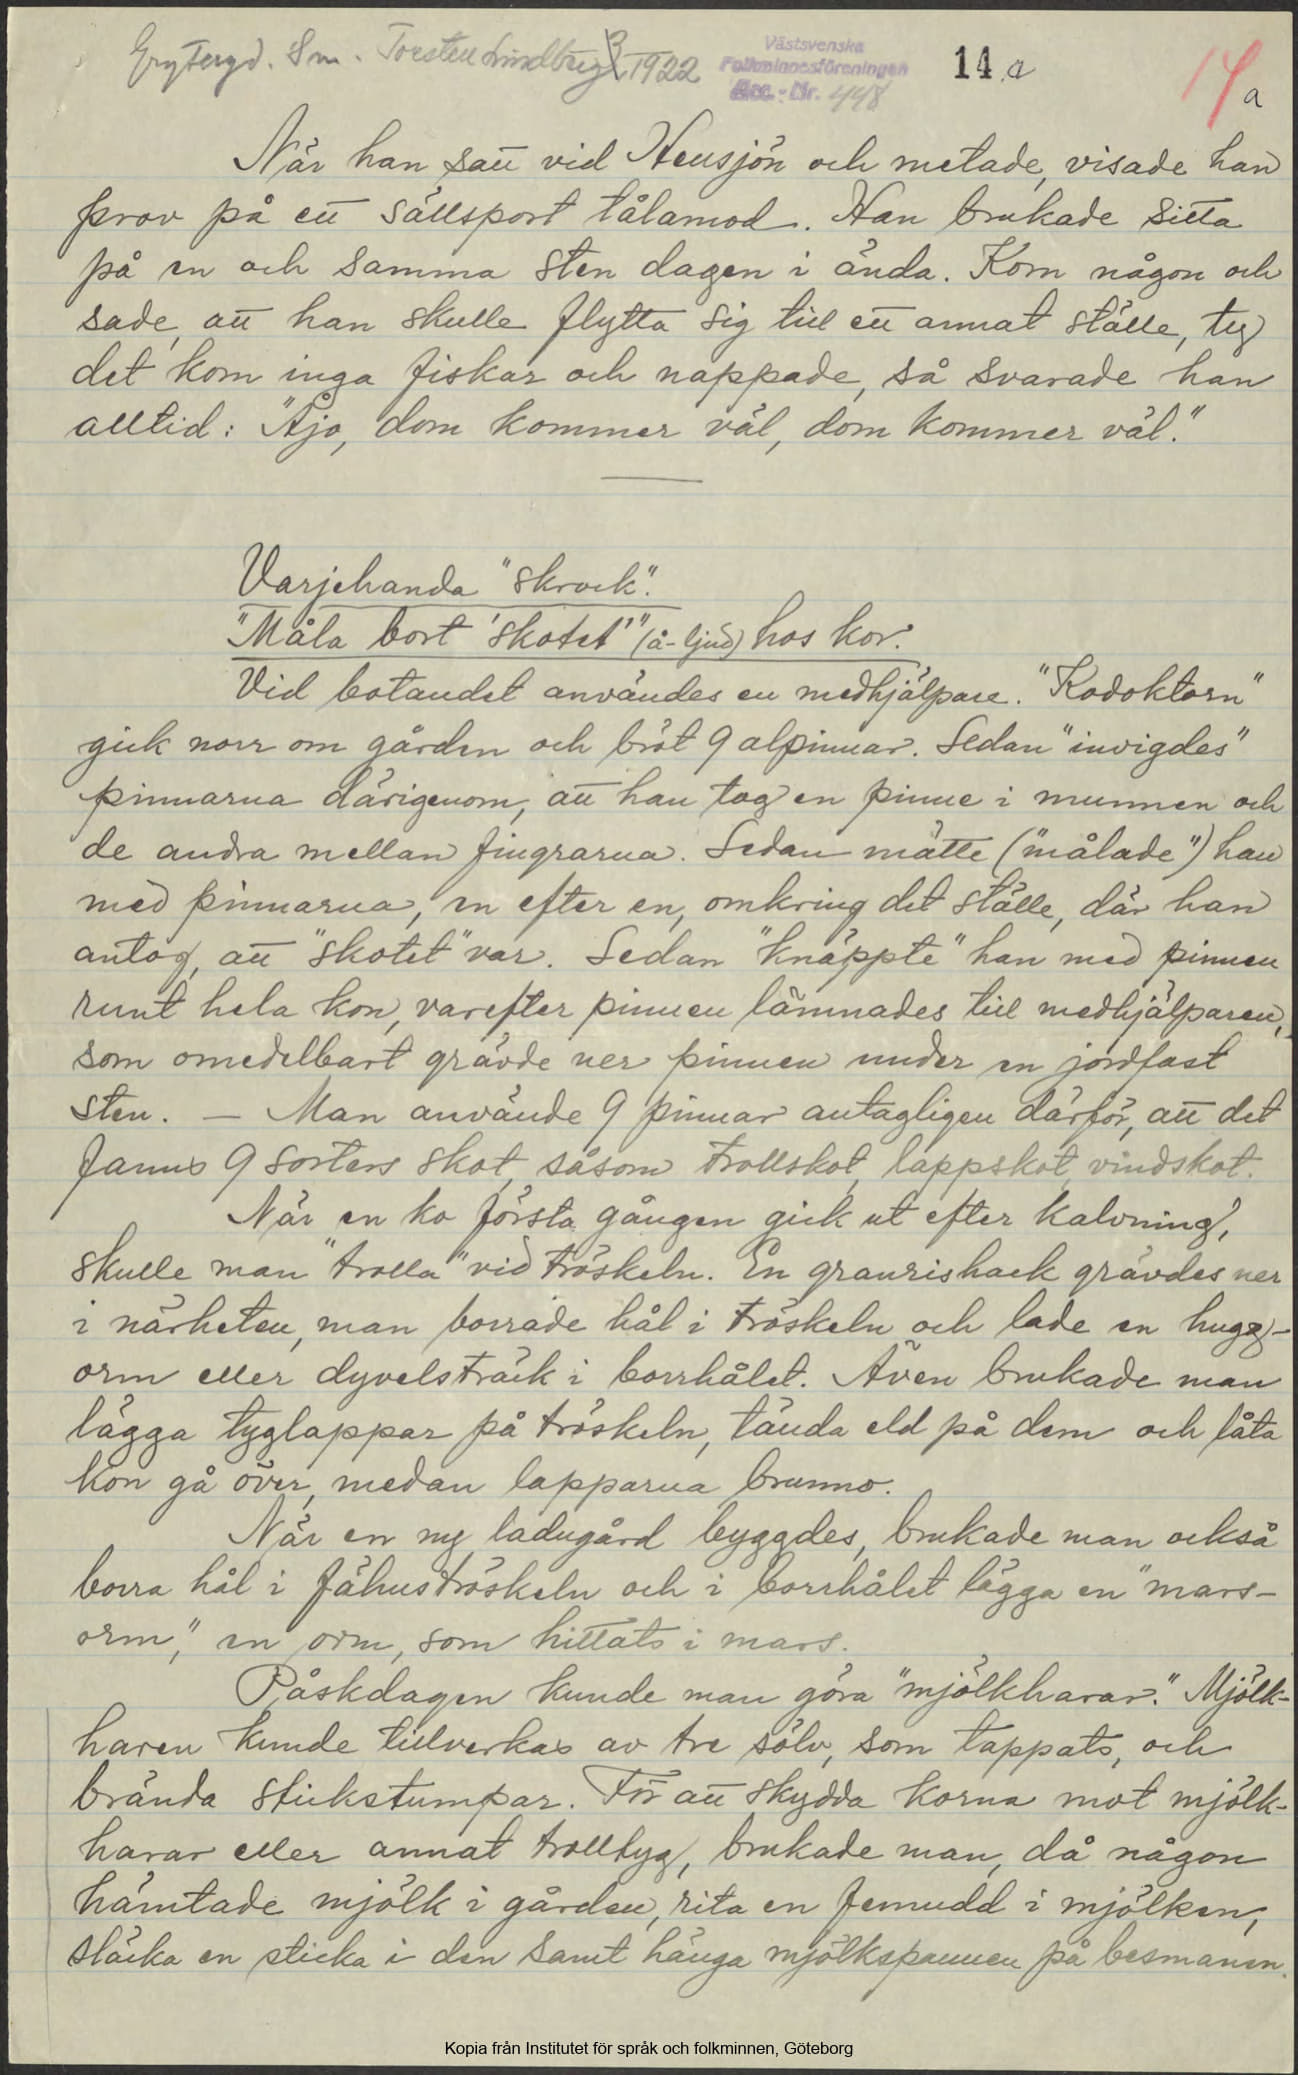 Grytergd. Sm. Torsten Lindberg 1922
Västsvenska
Folkminnesföreningen
Acc.-Nr. 448
14 a
14 a
När han satt vid Hensjön och metade, visade han
prov på ett sällsport tålamod. Han brukade sitta
på en och samma sten dagen i ända. Kom någon och
sade, att han skulle flytta sig till ett annat ställe, ty
det kom inga fiskar och nappade, så svarade han
alltid: "Åjo, dom kommer väl, dom kommer väl."
Varjehanda "skrock".
"Måla bort 'skotet'" (å-ljud) hos kor.
Vid botandet användes en medhjälpare. "Kodoktorn"
gick norr om gården och bröt 9 alpinnar. Sedan "invigdes"
pinnarna därigenom, att han tog en pinne i munnen och
de andra mellan fingrarna. Sedan mätte ("målade") han
med pinnarna, en efter en, omkring det ställe, där han
antog, att "skotet" var. Sedan "knäppte" han med pinnen
runt hela kon, varefter pinnen lämnades till medhjälparen,
som omedelbart grävde ner pinnen under en jordfast
sten. — Man använde 9 pinnar antagligen därför, att det
fanns 9 sorters skot, såsom trollskot, lappskot, vindskot.
När en ko första gången gick ut efter kalvning,
skulle man "trolla" vid tröskeln. En granrishack grävdes ner
i närheten, man borrade hål i tröskeln och lade en hugg-
orm eller dyvelsträck i borrhålet. Även brukade man
lägga tyglappar på tröskeln, tända eld på dem och låta
kon gå över, medan lapparna brunno.
När en ny ladugård byggdes, brukade man också
borra hål i fähuströskeln och i borrhålet lägga en "mars-
orm," en orm, som hittats i mars.
Påskdagen kunde man göra "mjölkharar." Mjölk-
haren kunde tillverkas av tre sölv, som tappats, och
brända stickstumpar. För att skydda korna mot mjölk-
harar eller annat trolltyg, brukade man, då någon
hämtade mjölk i gården, rita en femudd i mjölken,
släcka en sticka i den samt hänga mjölkspannen på besmanen.
Kopia från Institutet för språk och folkminnen, Göteborg